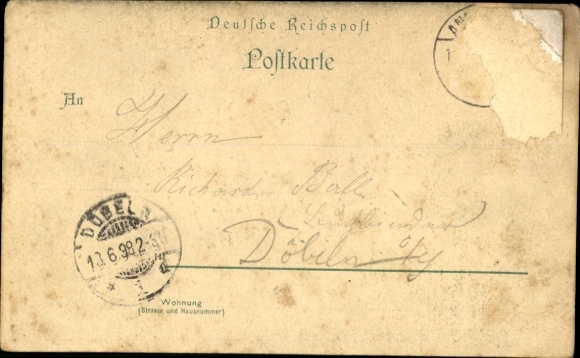 Deutsche Reichspost
Postkarte
An
Herrn
Richard Ball
Döbeln
DÖBELN
13.6.98.2-3N
* a
Wohnung
(Strasse und Hausnummer)